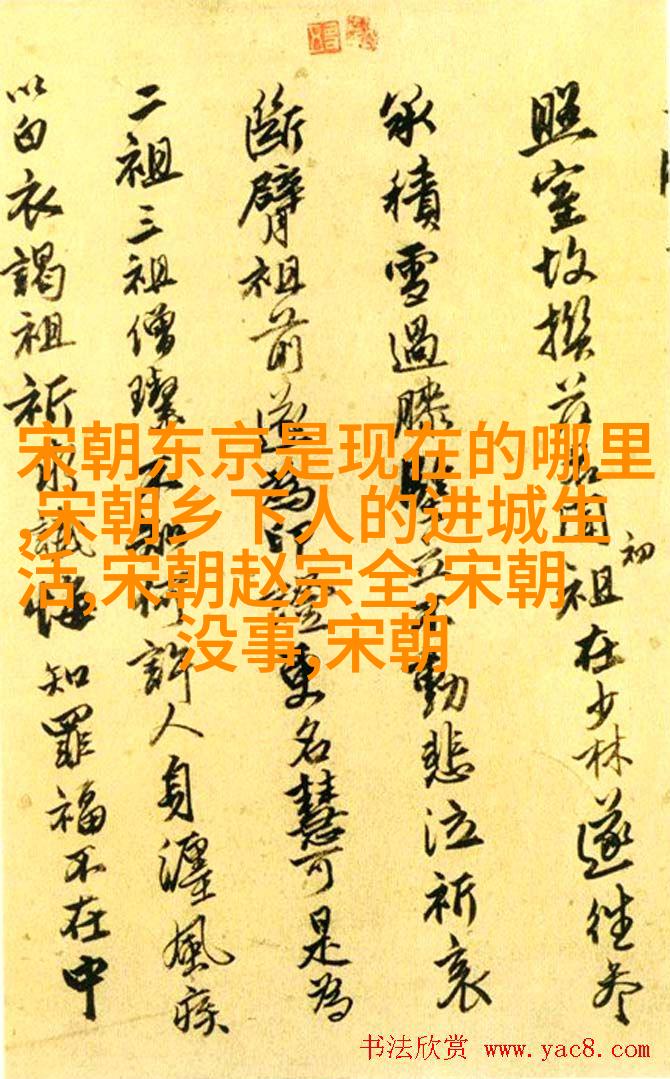 照室故撰聞初祖在少林遂往參
承積雪過膝立不動悲泣祈哀
斷臂祖前遂為印證更名慧可是為
二祖三祖僧璨不知何許人身纏風疾
以白衣謁祖祈為懺悔知罪福不在中
宋朝东京是现在的哪里
,宋朝乡下人的进城生
活,宋朝赵宗全,宋朝
没事,宋朝
书法欣赏 www.yac8.com